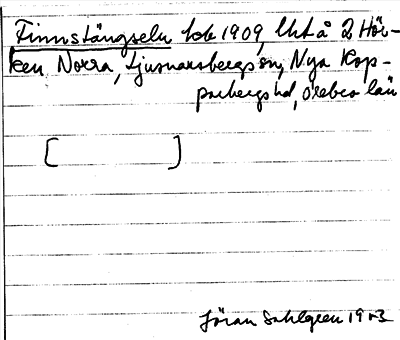 Finnstängseln bok 1909, Ukt å 2 Hör-
ken Norra, Ljusnarsbergs sn, Nya Kop-
parbergs hd, Örebro län
[ ]
Jöran Sahlgren 19